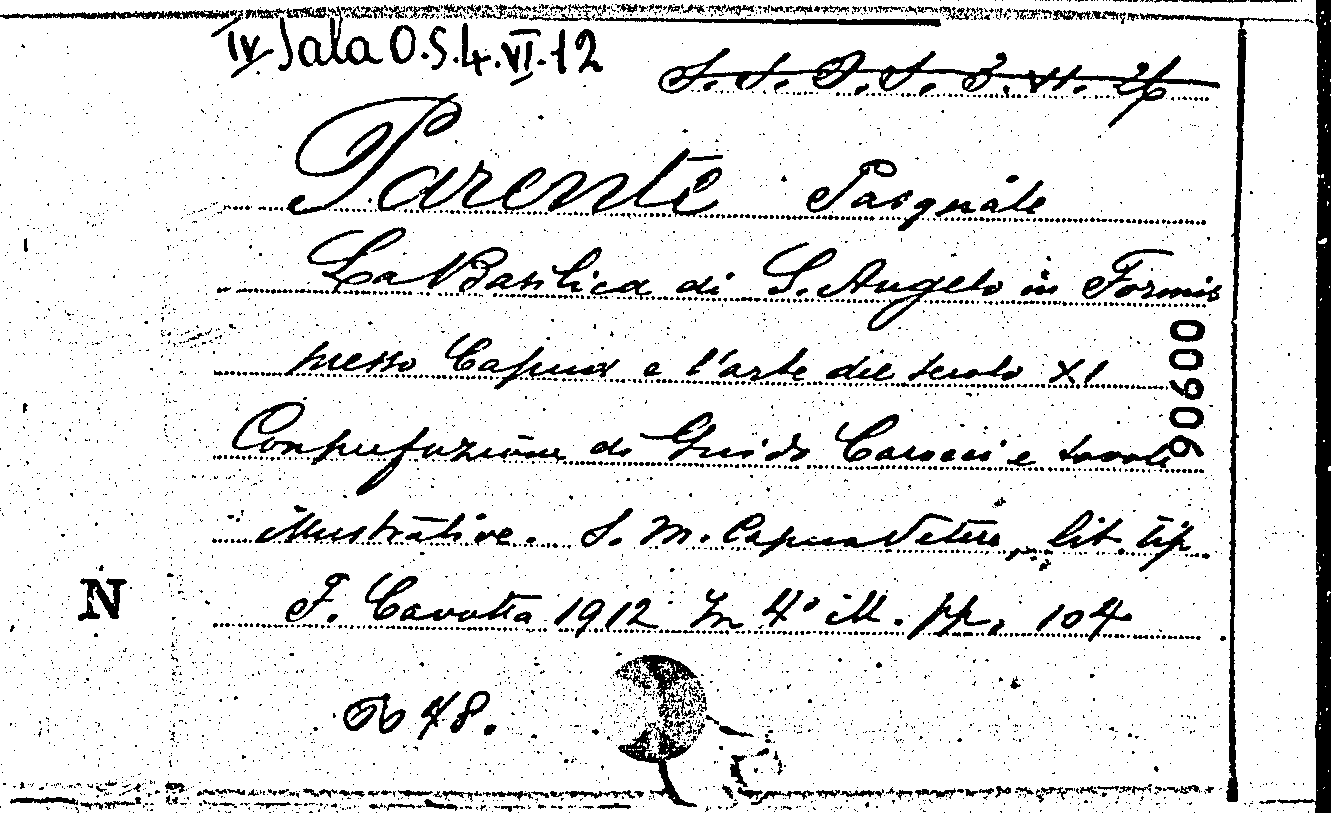 IV. Sala O.S.4.VI.12
S. S. S. S. 3. VI. 26
Parente Pasquale
La Basilica di S. Angelo in Formis
presso Capua e l'arte del secolo XI
Con prefazione di Guido Carocci e tavole
illustrative. S. M. Capua Vetere, lit. tip.
F. Cavotta 1912 In 4° ill. pp. 104
48.
00906
N